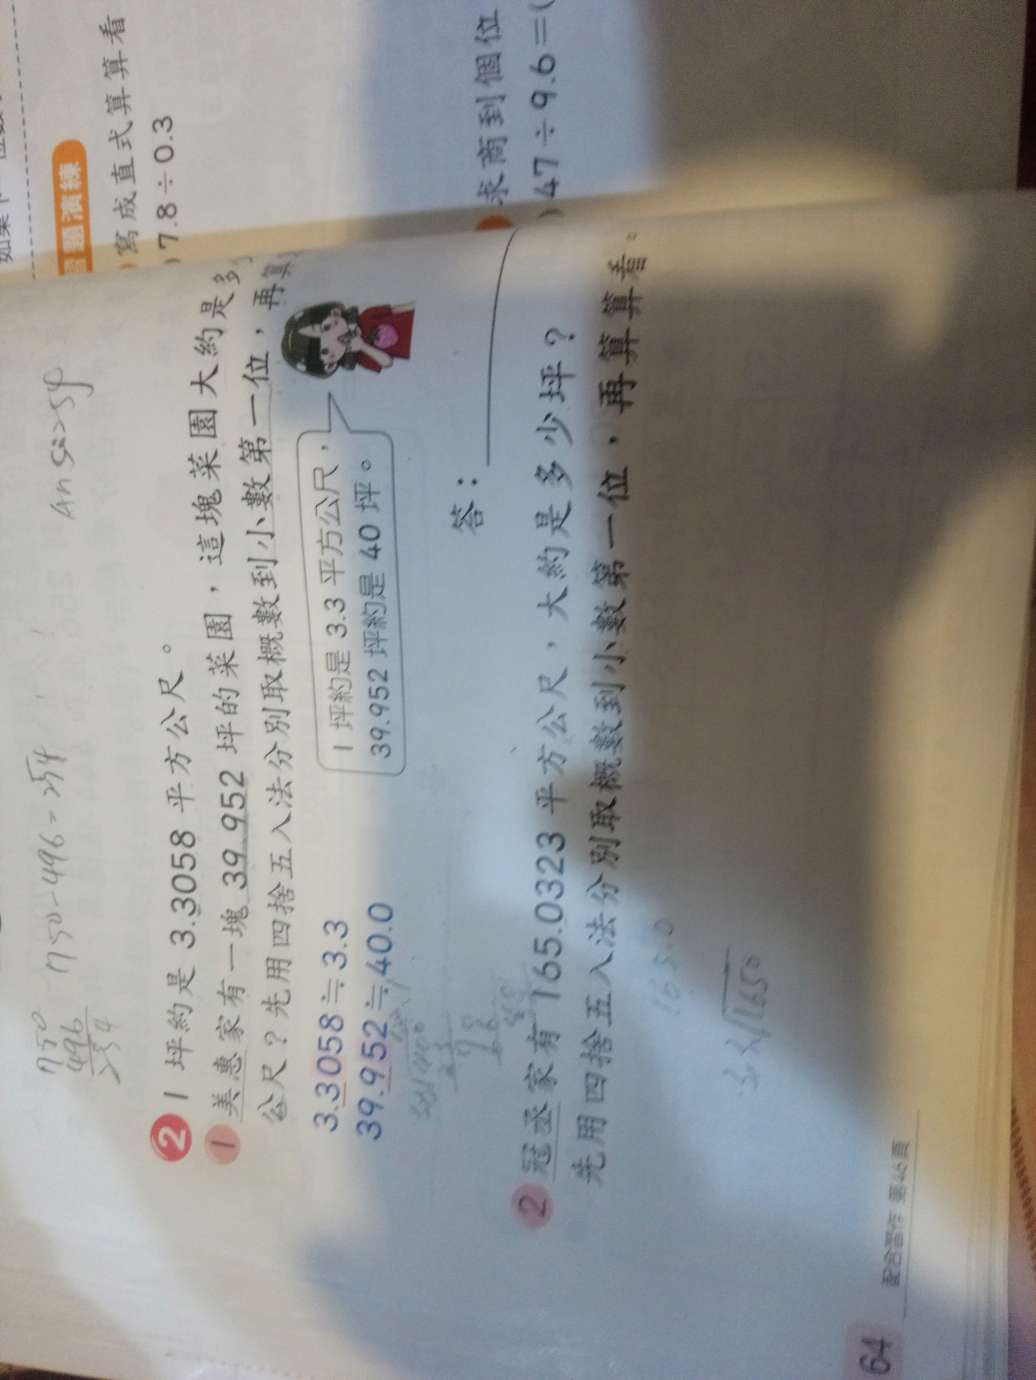 750
496
254
750-496=254
Ans:254
2 1 坪約是 3.3058 平方公尺。
1 美惠家有一塊 39.952 坪的菜園，這塊菜園大約是多
公尺？先用四捨五入法分別取概數到小數第一位，再算
3.3058≒3.3
39.952≒40.0
1 坪約是 3.3 平方公尺，
39.952 坪約是 40 坪。
答：
2 冠丞家有 165.0323 平方公尺，大約是多少坪？
先用四捨五入法分別取概數到小數第一位，再算算看。
165.0
1650
配合習作 第46頁
64
題演練
寫成直式算算看
7.8÷0.3
求商到個位
47÷9.6=(